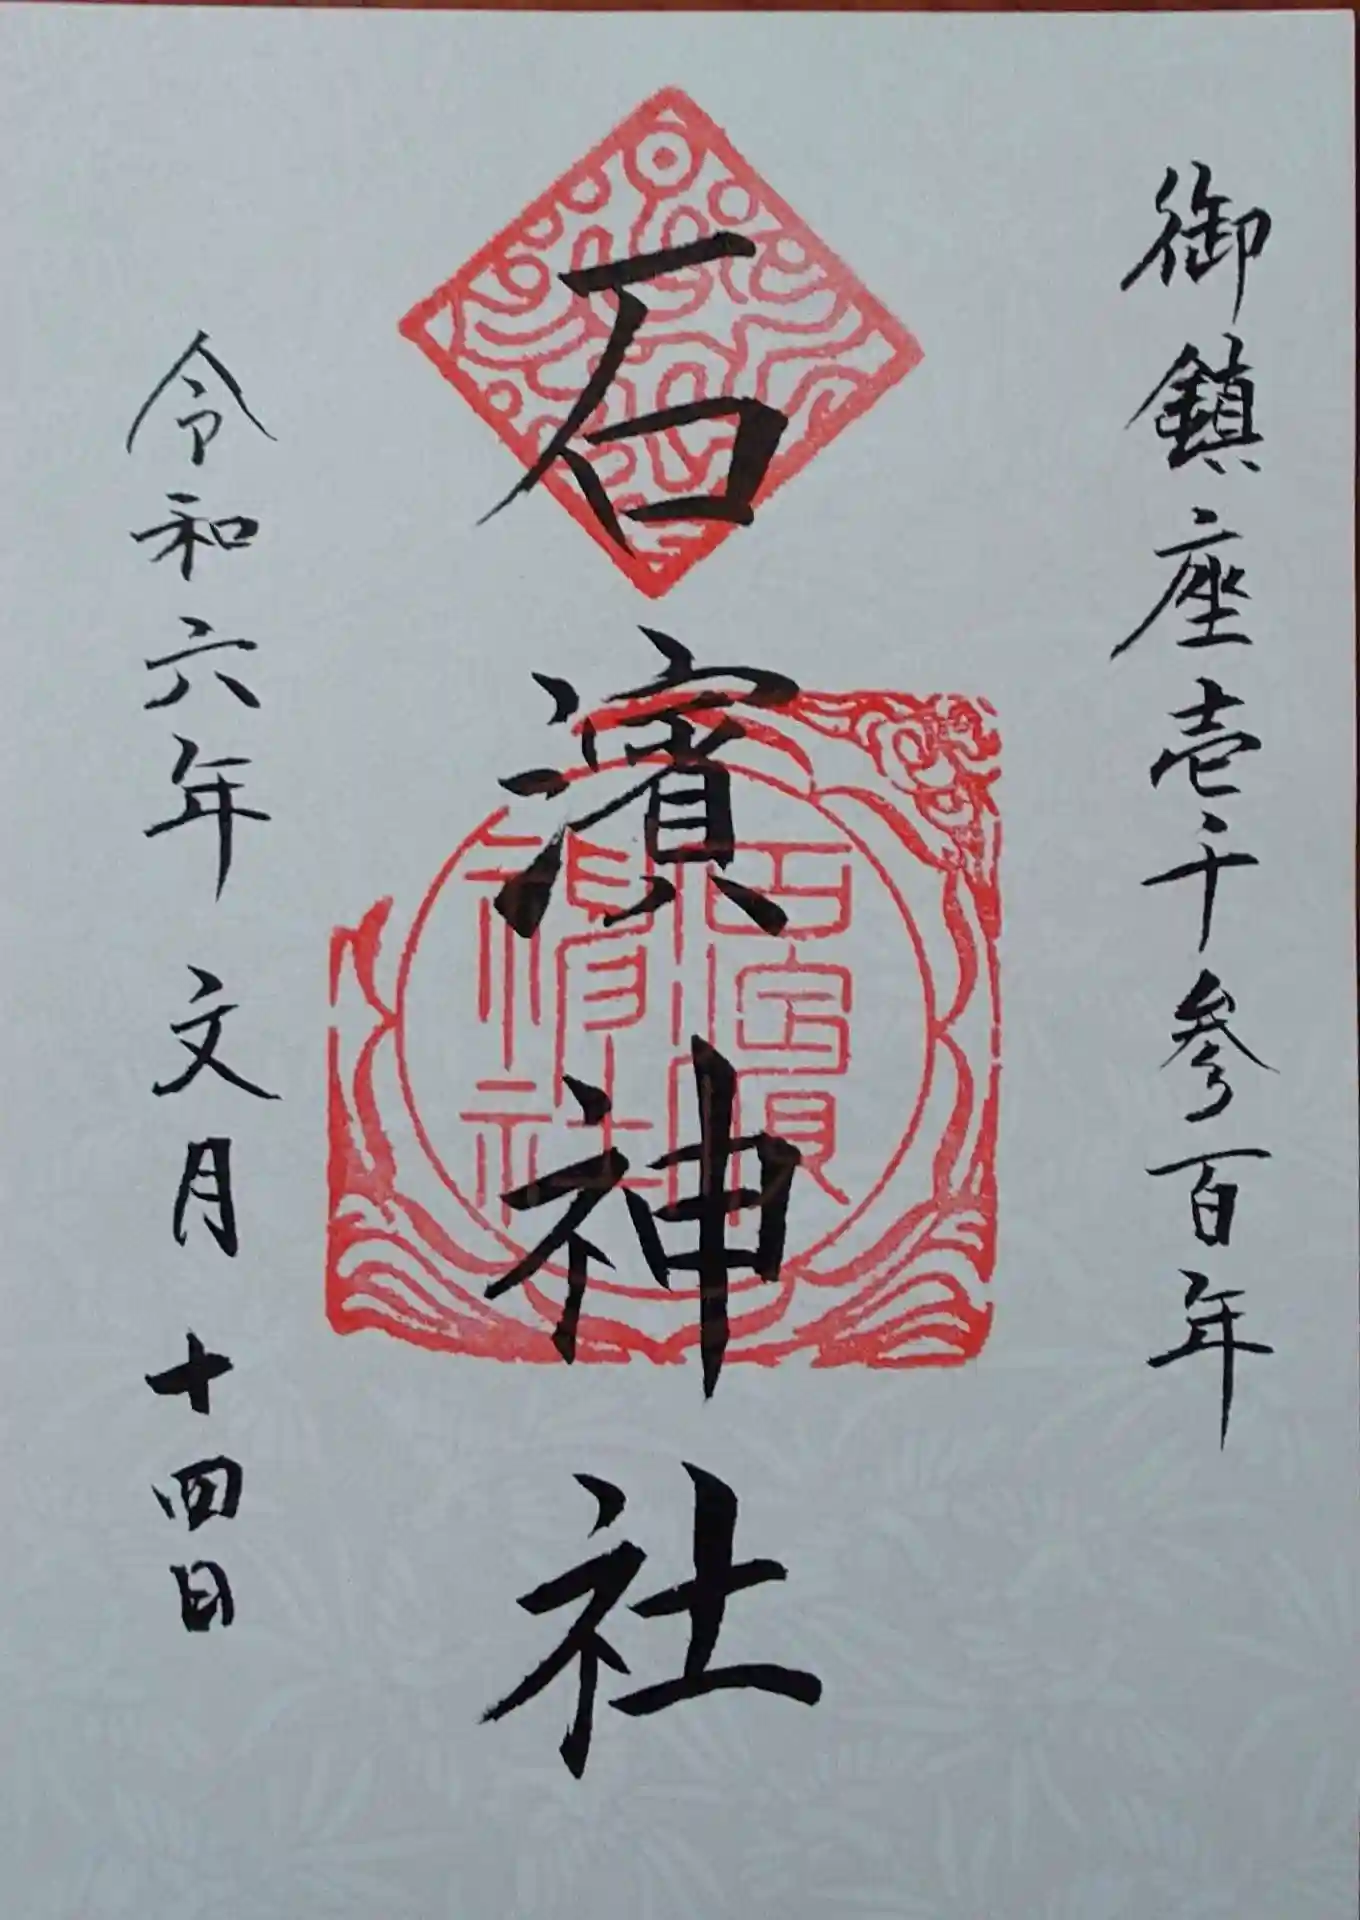 御鎮座壱千参百年
石濱神社
令和六年 文月 十四日
石濱神社